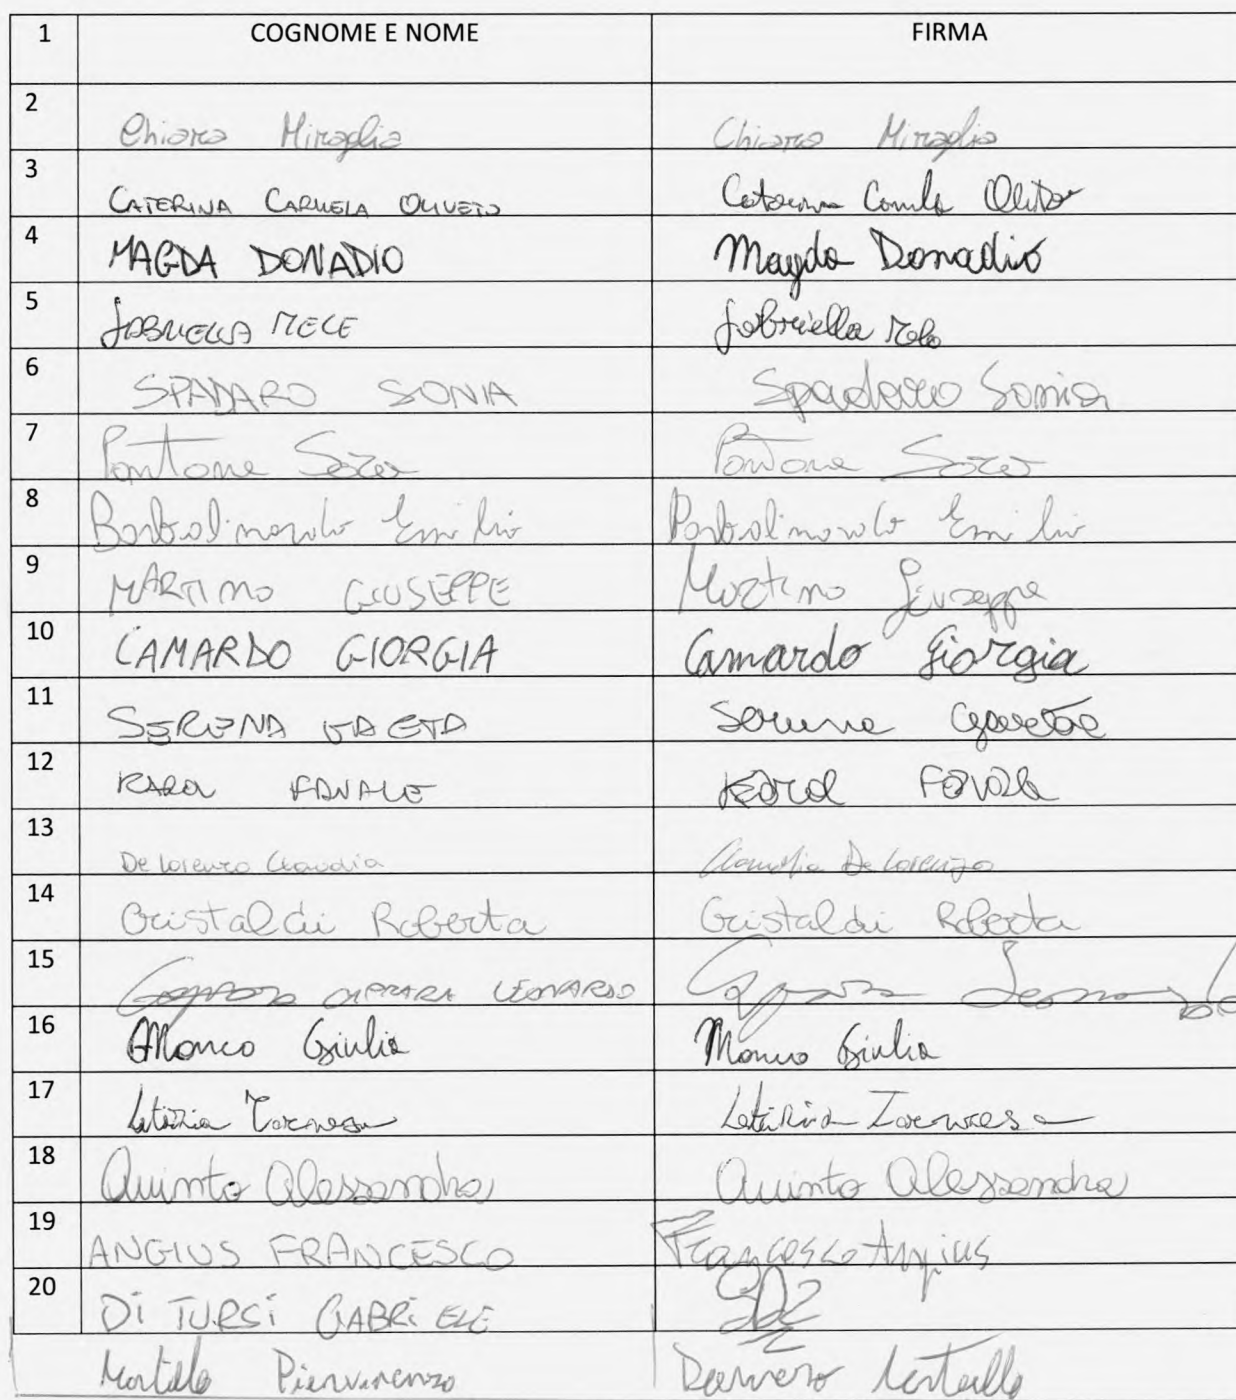 1 COGNOME E NOME FIRMA
2 Chiara Miraglia Chiara Miraglia
3 CATERINA CARMELA OLIVETO Caterina
4 MAGDA DONADIO Magda Donadio
5 GABRIELLA MELE Gabriella Mele
6 SPADARO SONIA Spadaro Sonia
7 Pontone Sara Pontone Sara
8 Bartolomeolo Emilio Emilio
9 MARTINO GIUSEPPE Martino Giuseppe
10 CAMARDO GIORGIA Camardo Giorgia
11 SERENA GAETA Serena Gaeta
12 KAROL FANALE Karol
13 De Lorenzo Claudia Claudia De Lorenzo
14 Cristaldi Roberta Cristaldi Roberta
15 CAPRARA LEONARDO Caprara Leonardo
16 Monco Giulia Monco Giulia
17 Letizia Letizia
18 Quinto Alessandra Quinto Alessandra
19 ANGIUS FRANCESCO Francesco Angius
20 Di TURSi GABRiELE
Martella Piervincenzo Martella